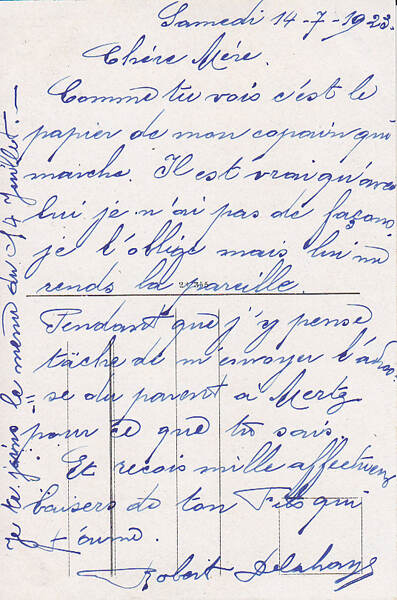 Samedi 14-7-1923.
Chére Mére.
Comme tu vois c'est le
papier de mon copain qui
maiche. Il est vrai qu'avec
lui je n'ai pas de façons
je l'oblige mais lui me
rends la pareille.
Pendant que j'y pense
tâche de m'envoyer l'adres
=se du parent à Mertz
pour ce que tu sais
Et recois mille affectueux
baisers de ton Fils qui
t'aime.
Robert Delahaye
Je te joins le menu du 14 Juillet.—